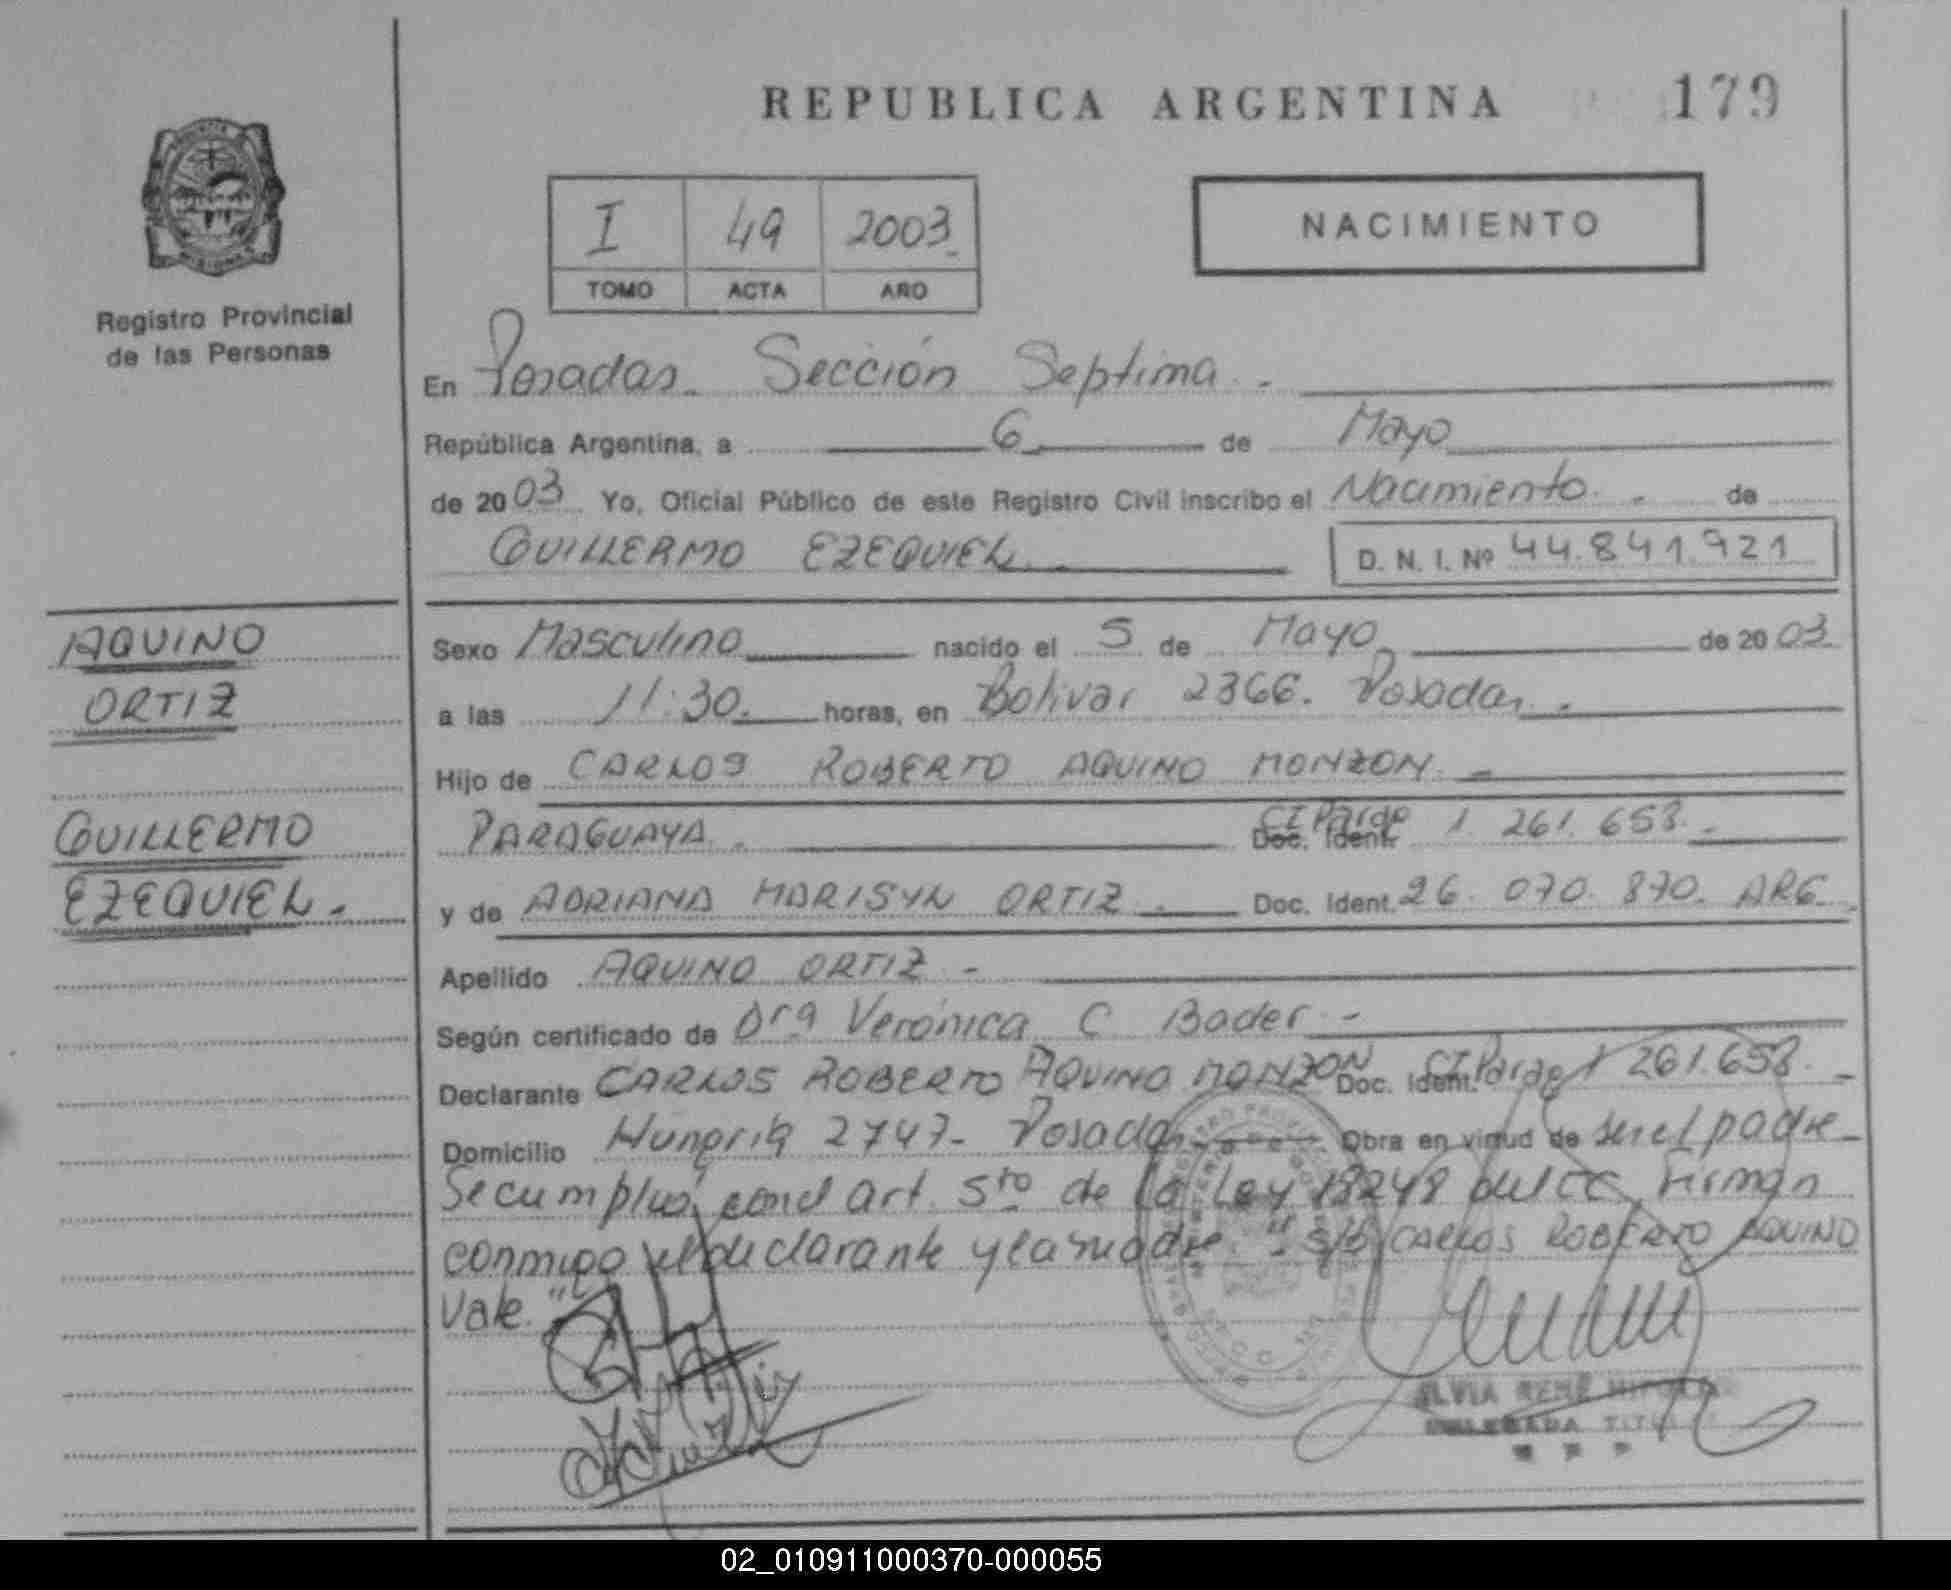 REPUBLICA ARGENTINA 179
I 49 2003
TOMO ACTA AÑO
NACIMIENTO
Registro Provincial
de las Personas
En Posadas. Sección Septima.
República Argentina, a 6 de Mayo
de 2003 Yo, Oficial Público de este Registro Civil inscribo el Nacimiento. de
GUILLERMO EZEQUIEL D. N. I. Nº 44.841.921
AQUINO
ORTIZ
GUILLERMO
EZEQUIEL.
Sexo Masculino nacido el 5 de Mayo de 2003.
a las 11:30. horas, en Bolivar 2366. Posadas.
Hijo de CARLOS ROBERTO AQUINO MONZON.
PARAGUAYA. Doc. Ident. CI Pardo 1.261.658.
y de ADRIANA MARISYL ORTIZ Doc. Ident. 26.070.870. ARG.
Apellido AQUINO ORTIZ -
Según certificado de Dra Verónica C Bader -
Declarante CARLOS ROBERTO AQUINO MONZON Doc. Ident. 1 261.658.
Domicilio Hungria 2747- Posadas Obra en virtud de ser el padre
Se cumplió con el art. 5to de la Ley 18248 del CC, Firman
conmigo el declarante y la madre. "S/B CARLOS ROBERTO AQUINO
Vale."
RENÉ
02_010911000370-000055